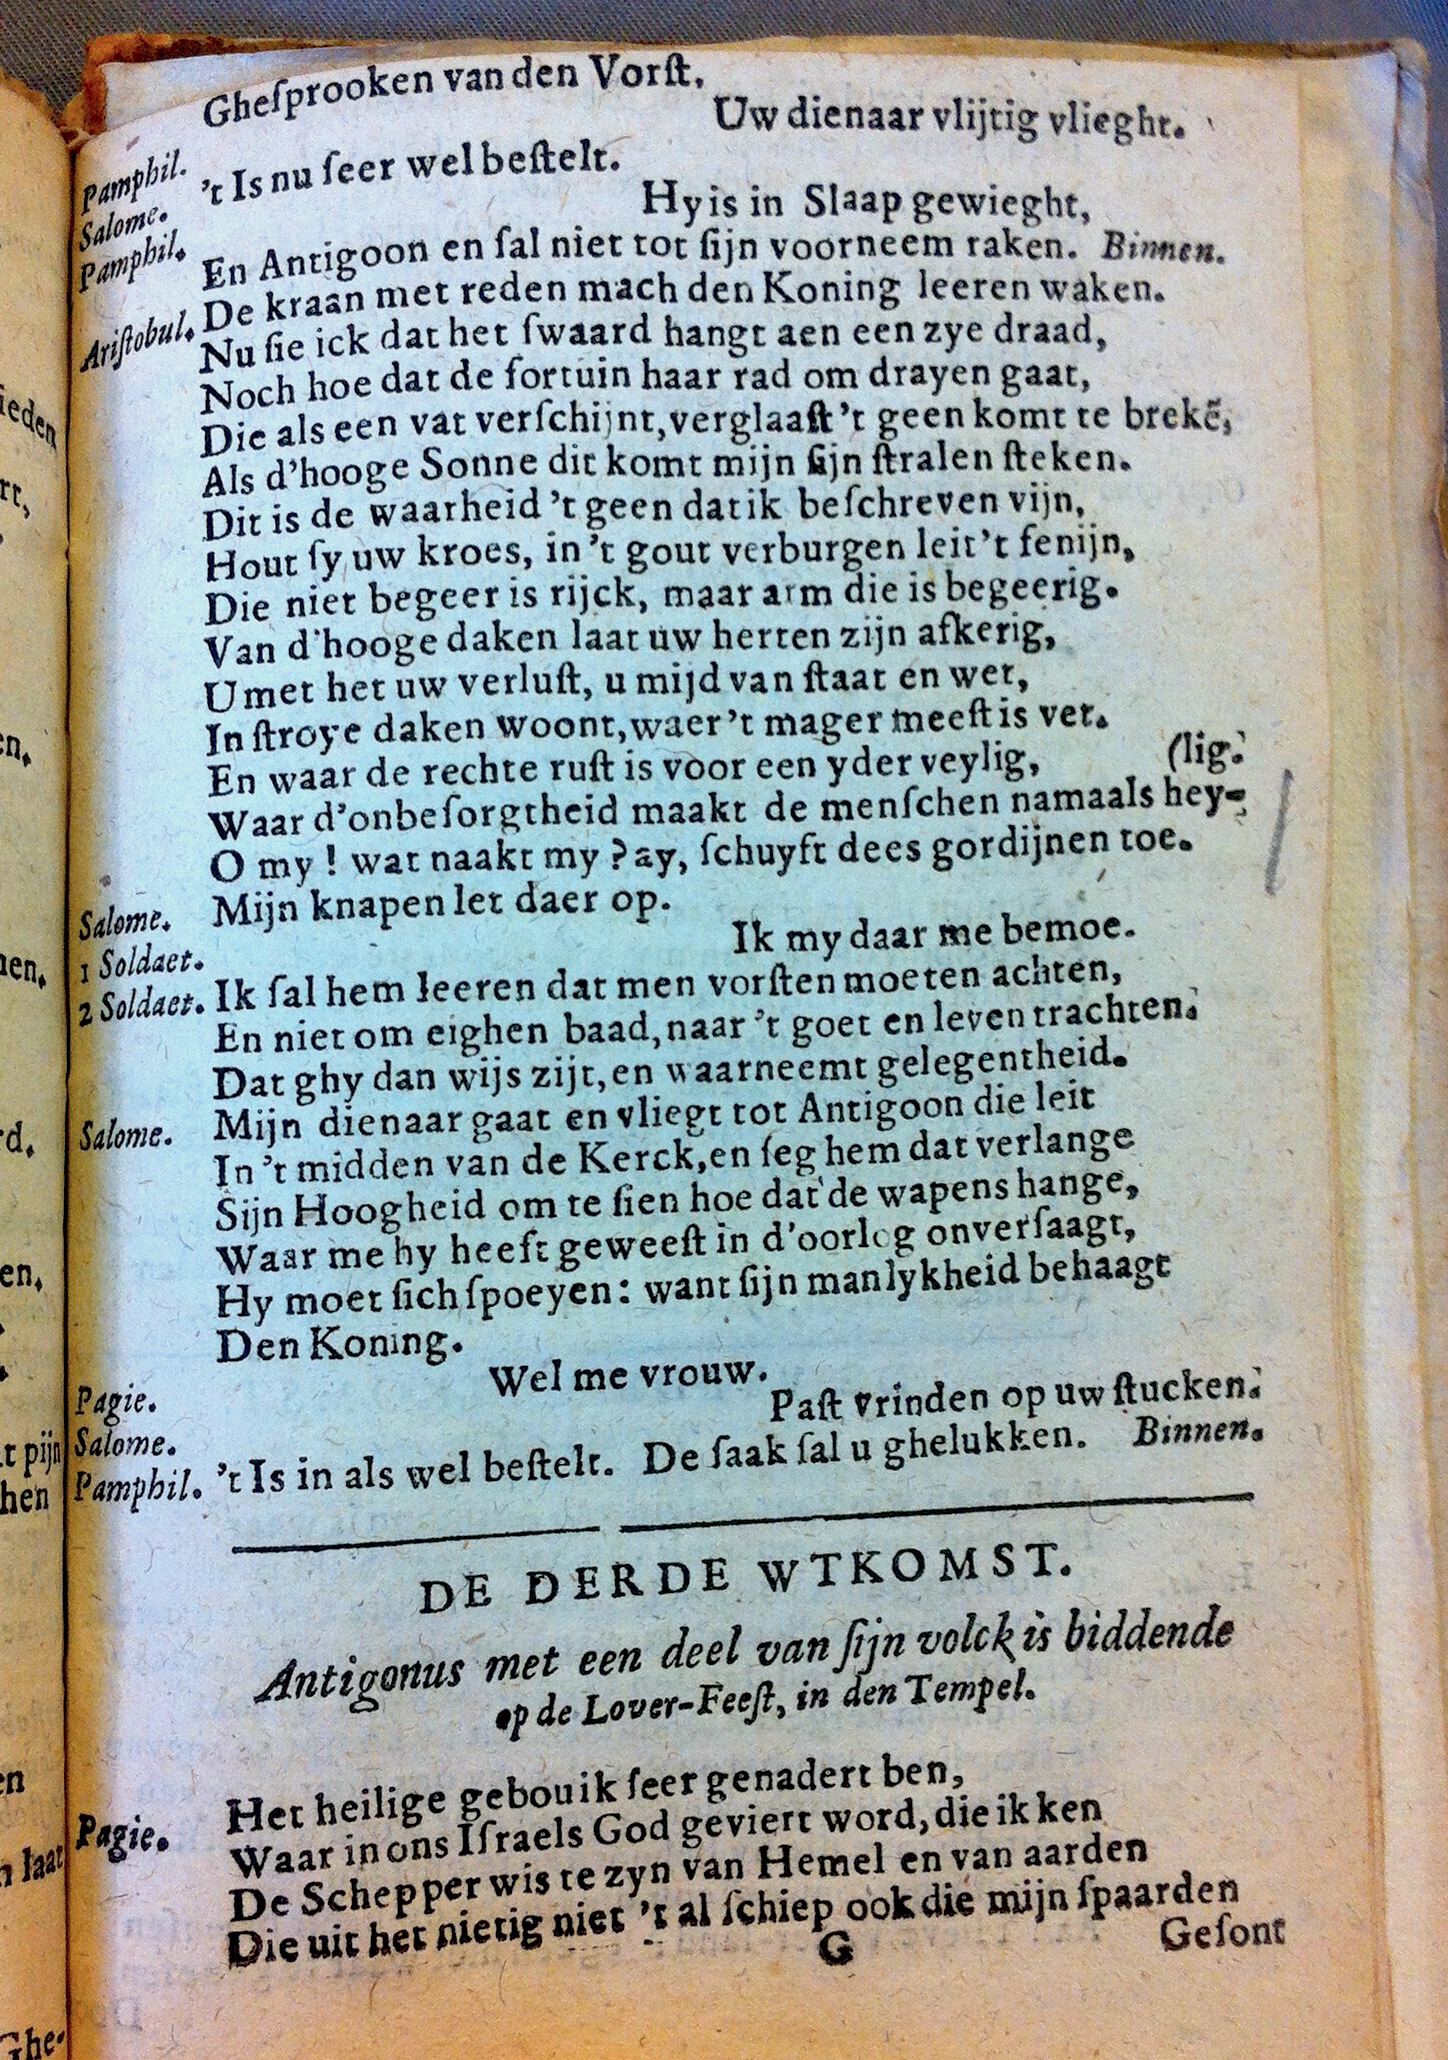 Gheſprooken van den Vorſt.
Pamphil. Uw dienaar vlijtig vlieght.
Salome. 't Is nu ſeer wel beſtelt.
Pamphil. Hy is in Slaap gewieght,
En Antigoon en ſal niet tot ſijn voorneem raken. Binnen.
Ariſtobul. De kraan met reden mach den Koning leeren waken.
Nu ſie ick dat het ſwaard hangt aen een zye draad,
Noch hoe dat de fortuin haar rad om drayen gaat,
Die als een vat verſchijnt, verglaaſt 't geen komt te brekē,
Als d'hooge Sonne dit komt mijn ſijn ſtralen ſteken.
Dit is de waarheid 't geen dat ik beſchreven vijn,
Hout ſy uw kroes, in 't gout verburgen leit 't fenijn,
Die niet begeer is rijck, maar arm die is begeerig.
Van d'hooge daken laat uw herten zijn afkerig,
U met het uw verluſt, u mijd van ſtaat en wet,
In ſtroye daken woont, waer 't mager meeſt is vet.
En waar de rechte ruſt is voor een yder veylig, (lig.
Waar d'onbeſorgtheid maakt de menſchen namaals hey-
O my ! wat naakt my ? ay, ſchuyft dees gordijnen toe.
Salome. Mijn knapen let daer op.
1 Soldaet. Ik my daar me bemoe.
2 Soldaet. Ik ſal hem leeren dat men vorſten moeten achten,
En niet om eighen baad, naar 't goet en leven trachten.
Dat ghy dan wijs zijt, en waarneemt gelegentheid.
Salome. Mijn dienaar gaat en vliegt tot Antigoon die leit
In 't midden van de Kerck, en ſeg hem dat verlange
Sijn Hoogheid om te ſien hoe dat de wapens hange,
Waar me hy heeft geweeſt in d'oorlog onverſaagt,
Hy moet ſich ſpoeyen: want ſijn manlykheid behaagt
Den Koning.
Pagie. Wel me vrouw.
Salome. Paſt vrinden op uw ſtucken.
Pamphil. 't Is in als wel beſtelt. De ſaak ſal u ghelukken. Binnen.
DE DERDE WTKOMST.
Antigonus met een deel van ſijn volck is biddende
op de Lover-Feeſt, in den Tempel.
Pagie. Het heilige gebou ik ſeer genadert ben,
Waar in ons Iſraels God geviert word, die ik ken
De Schepper wis te zyn van Hemel en van aarden
Die uit het nietig niet 't al ſchiep ook die mijn ſpaarden
G Geſont
ieden
rt,
en.
nen.
rd.
en.
t pijn
hen
en
n laat
Ghe-